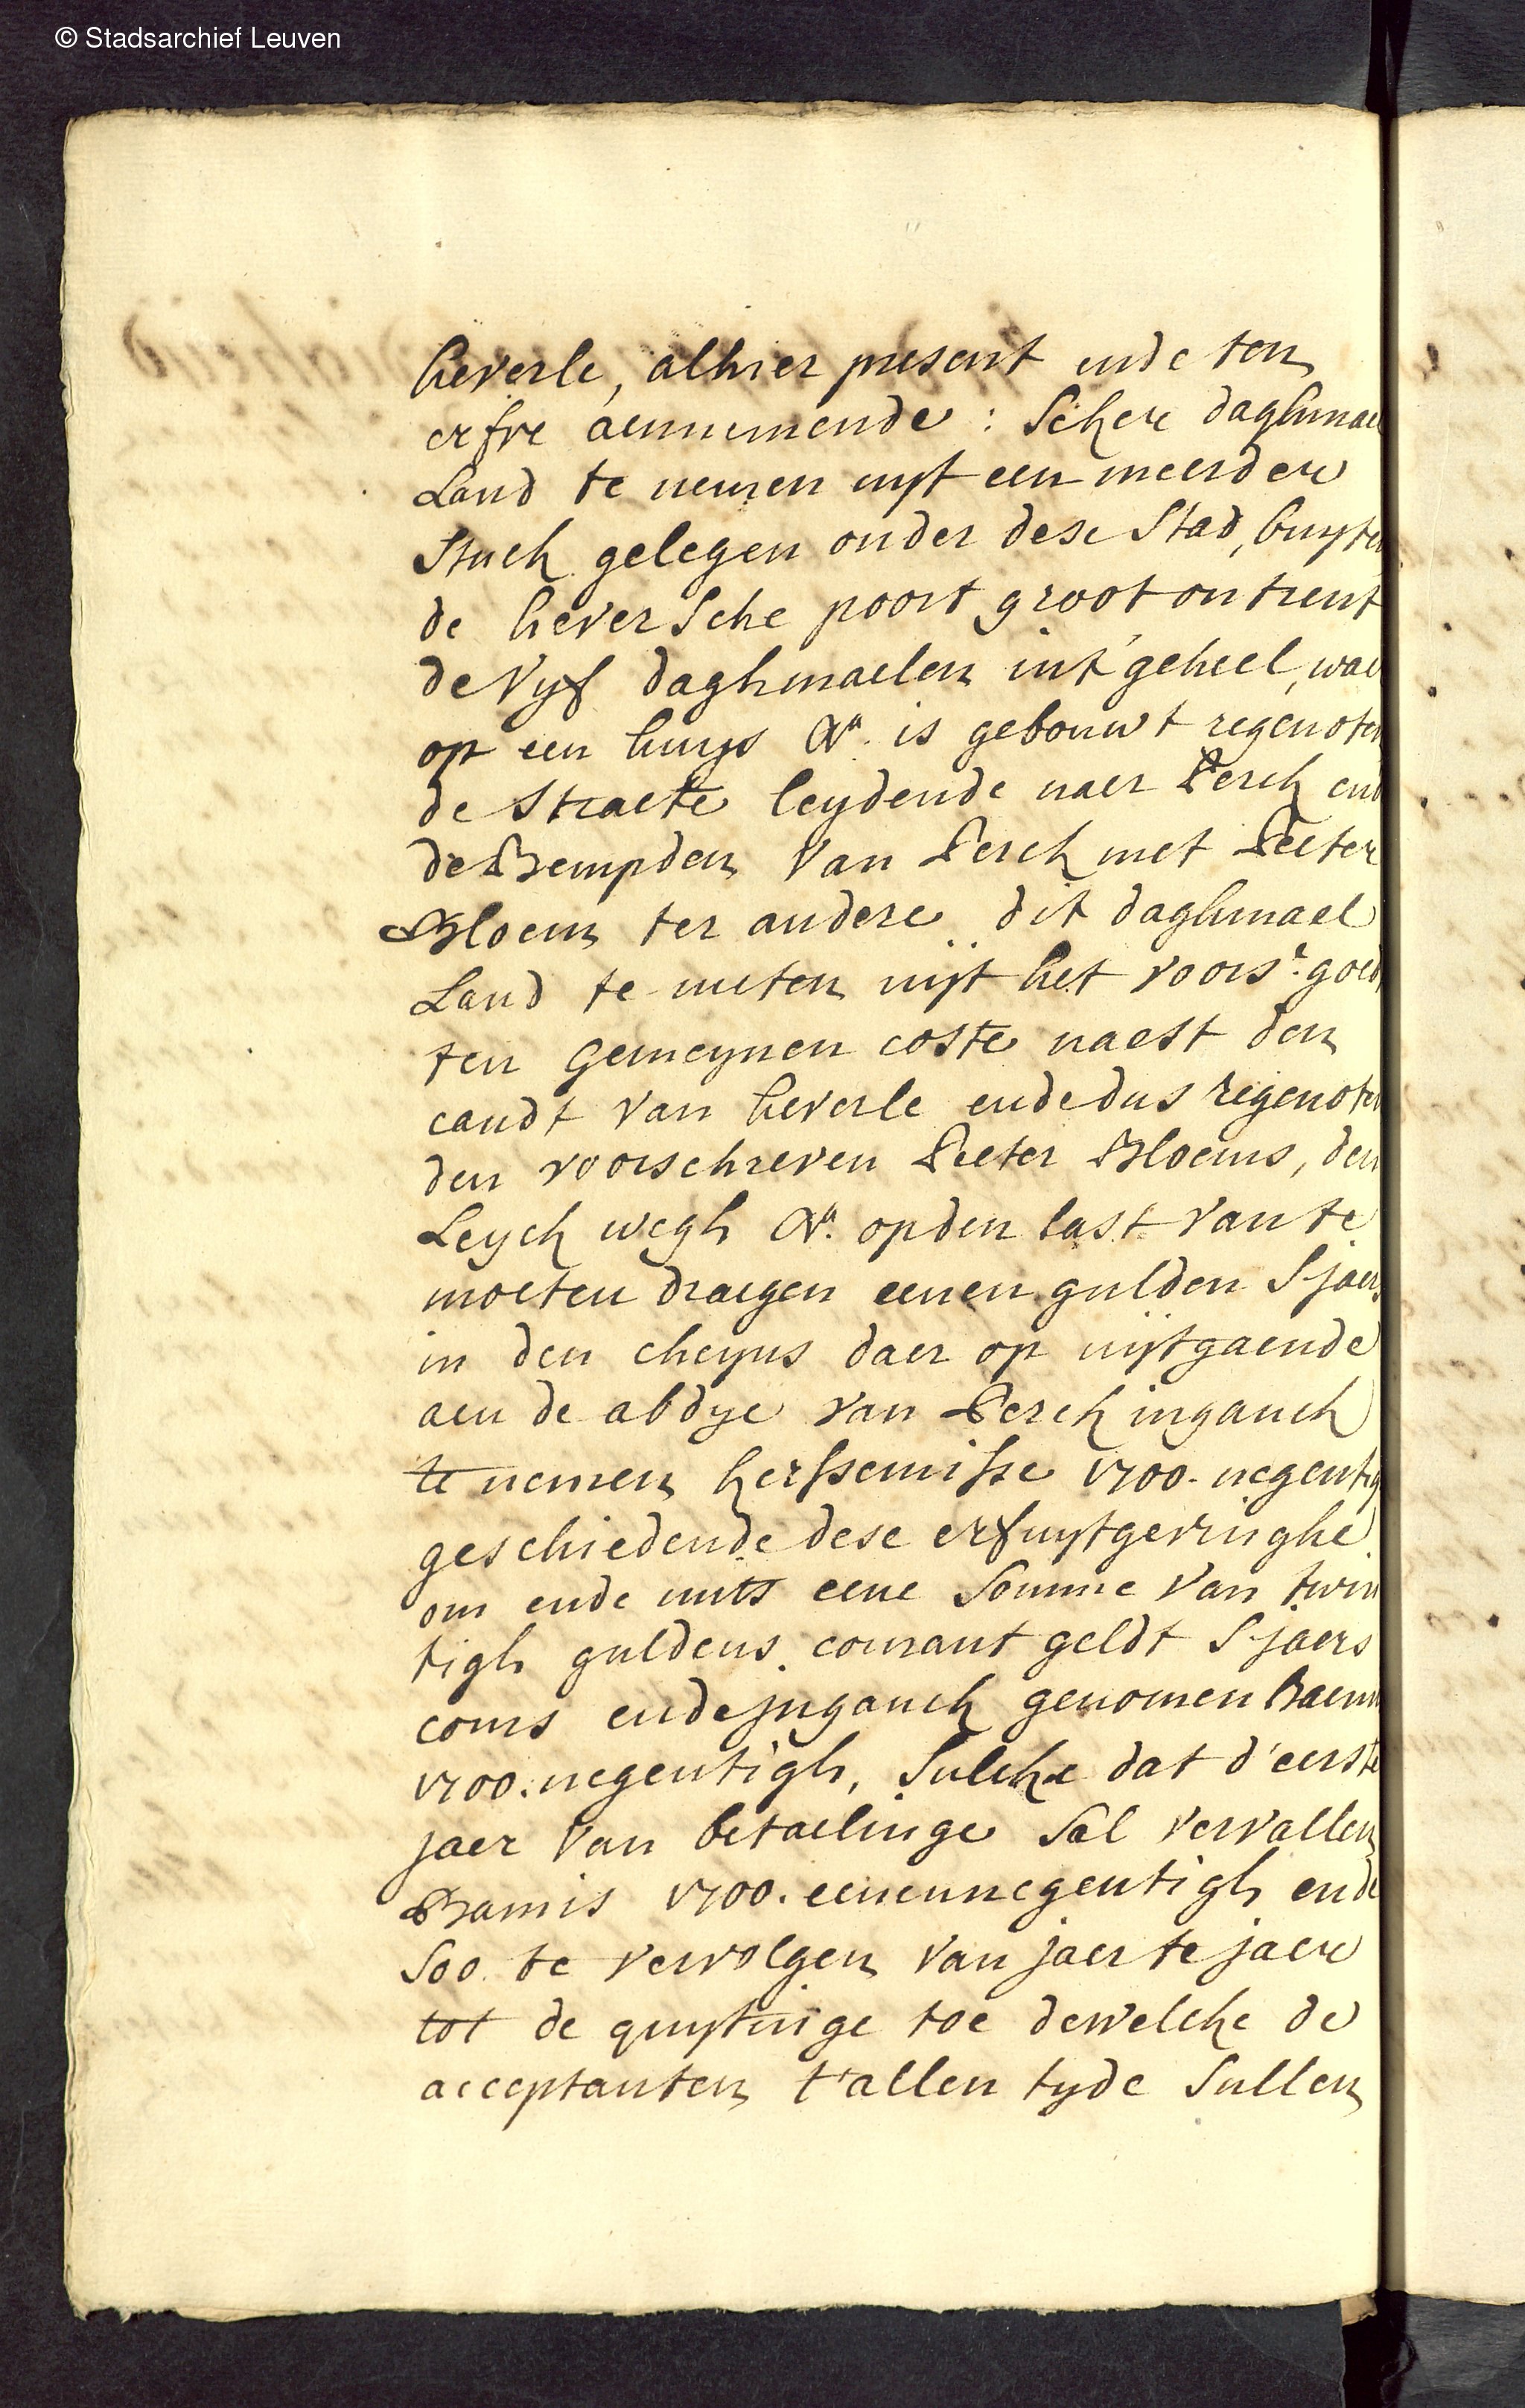 © Stadsarchief Leuven
heverle, alhier present ende ten
erfve aennemende: sekere daghmael
Land te nemen uyt een meerder
stuck gelegen onder dese stad, buyten
de heversche poort groot ontrent
de vyf daghmaelen int geheel, waer
op een huys &a. is gebouwt regenoten
de straete leydende naer Perck ende
de Bempden van Perck met Peeter
Bloems ter andere dit daghmael
Land te meten uyt het voors. goed
ten gemeynen coste naest den
candt van heverle ende dus regenoten
den voorschreven Peeter Bloems, den
Leyck wegh &a. op den last van te
moeten draegen eenen gulden s'jaers
in den cheyns daer op uytgaende
aen de abdye van Perck inganck
te nemen kerssemisse 1700. negentig
geschiedende dese erfuytgevinghe
om ende mits eene somme van twin
tigh guldens courant geldt s'jaers
cours ende inganck genomen Baem
1700. negentigh, sulckx dat d'eerste
jaer van betaelinge sal vervallen
Bamis 1700. eenennegentigh ende
soo te vervolgen van jaer te jaere
tot de quytinge toe dewelcke de
acceptanten t'allen tyde sullen